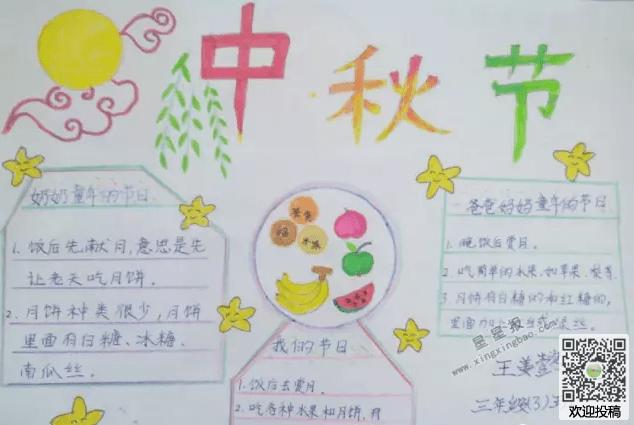 中秋节
奶奶童年的节日
1. 饭后先献月，意思是先
让老天吃月饼。
2. 月饼种类很少，月饼
里面有白糖、冰糖、
南瓜丝。
我们的节日
1. 饭后去赏月。
2. 吃各种水果和月饼，月
爸爸妈妈童年的节日
1. 晚饭后赏月。
2. 吃简单的水果，如苹果、梨等
3. 月饼有白糖的和红糖的，
里面
丝。
三年级(3)
星星报
www.xingxingbao.com
欢迎投稿